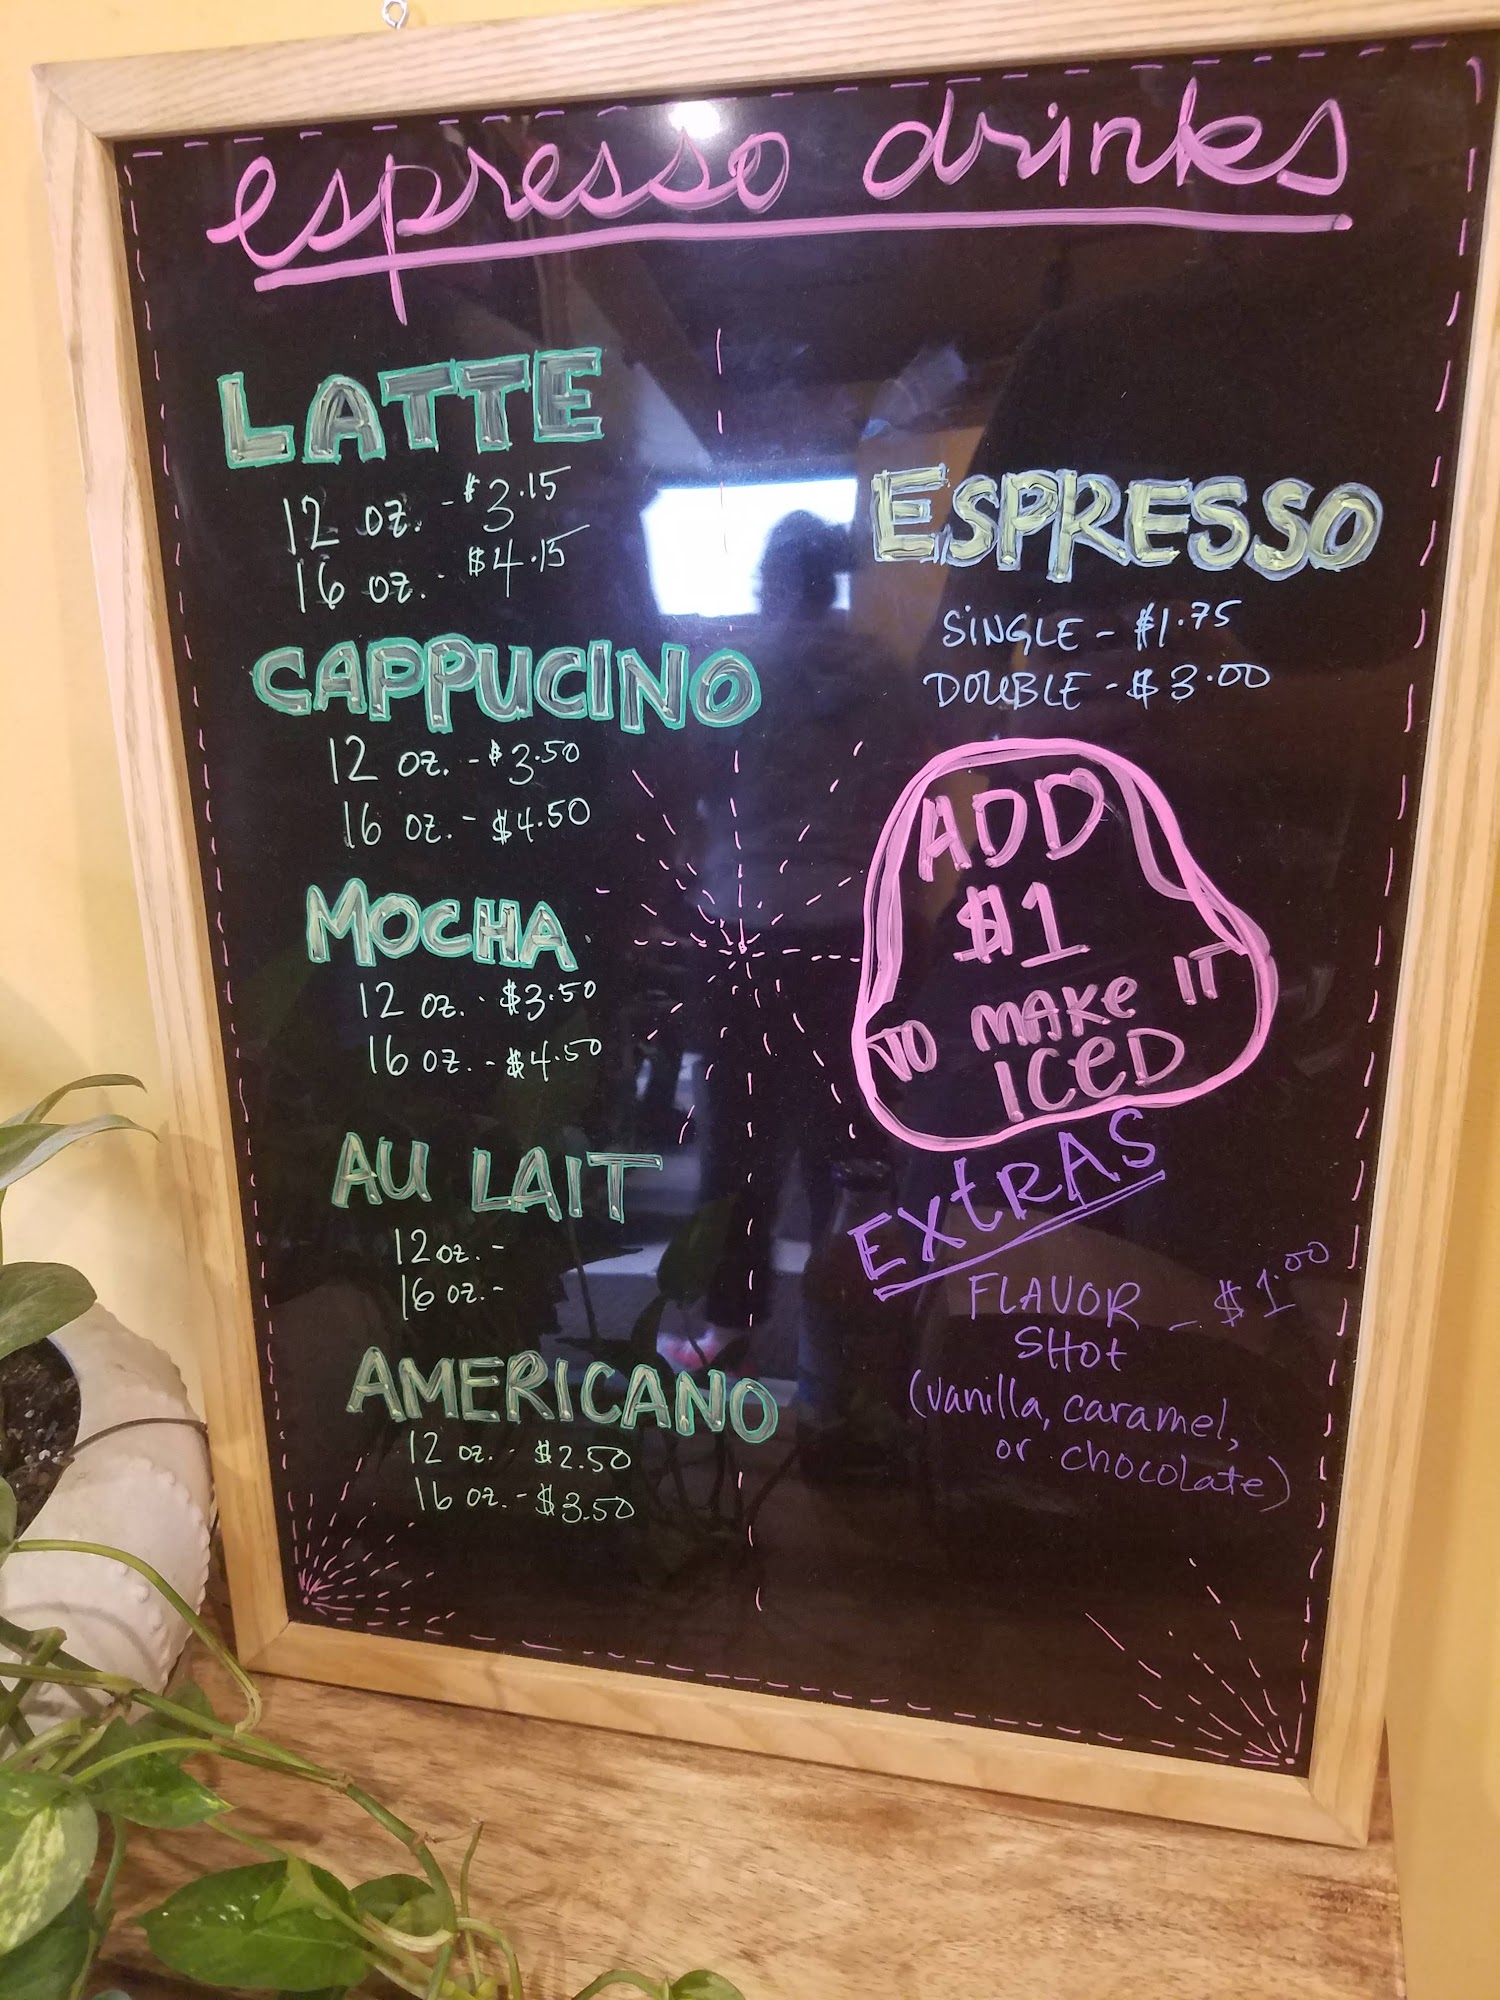 espresso drinks
LATTE
12 oz. - $3.15
16 oz. - $4.15
CAPPUCINO
12 oz. - $3.50
16 oz. - $4.50
MOCHA
12 oz. - $3.50
16 oz. - $4.50
AU LAIT
12 oz. -
16 oz. -
AMERICANO
12 oz. - $2.50
16 oz. - $3.50
ESPRESSO
SINGLE - $1.75
DOUBLE - $3.00
ADD
$1
TO MAKE IT
ICED
EXTRAS
FLAVOR - $1.00
SHOT
(vanilla, caramel,
or chocolate)